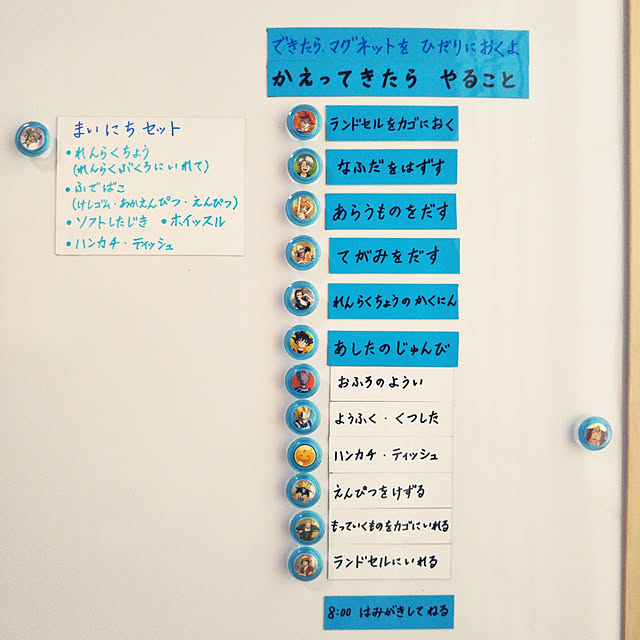 できたら、マグネットを ひだりにおくよ
かえってきたら やること
まいにちセット
・れんらくちょう
(れんらくぶくろにいれて)
・ふでばこ
(けしゴム・あかえんぴつ・えんぴつ)
・ソフトしたじき ・ホイッスル
・ハンカチ・ティッシュ
ランドセルをカゴにおく
なふだをはずす
あらうものをだす
てがみをだす
れんらくちょうのかくにん
あしたのじゅんび
おふろのようい
ようふく・くつした
ハンカチ・ティッシュ
えんぴつをけずる
もっていくものをカゴにいれる
ランドセルにいれる
8:00 はみがきしてねる